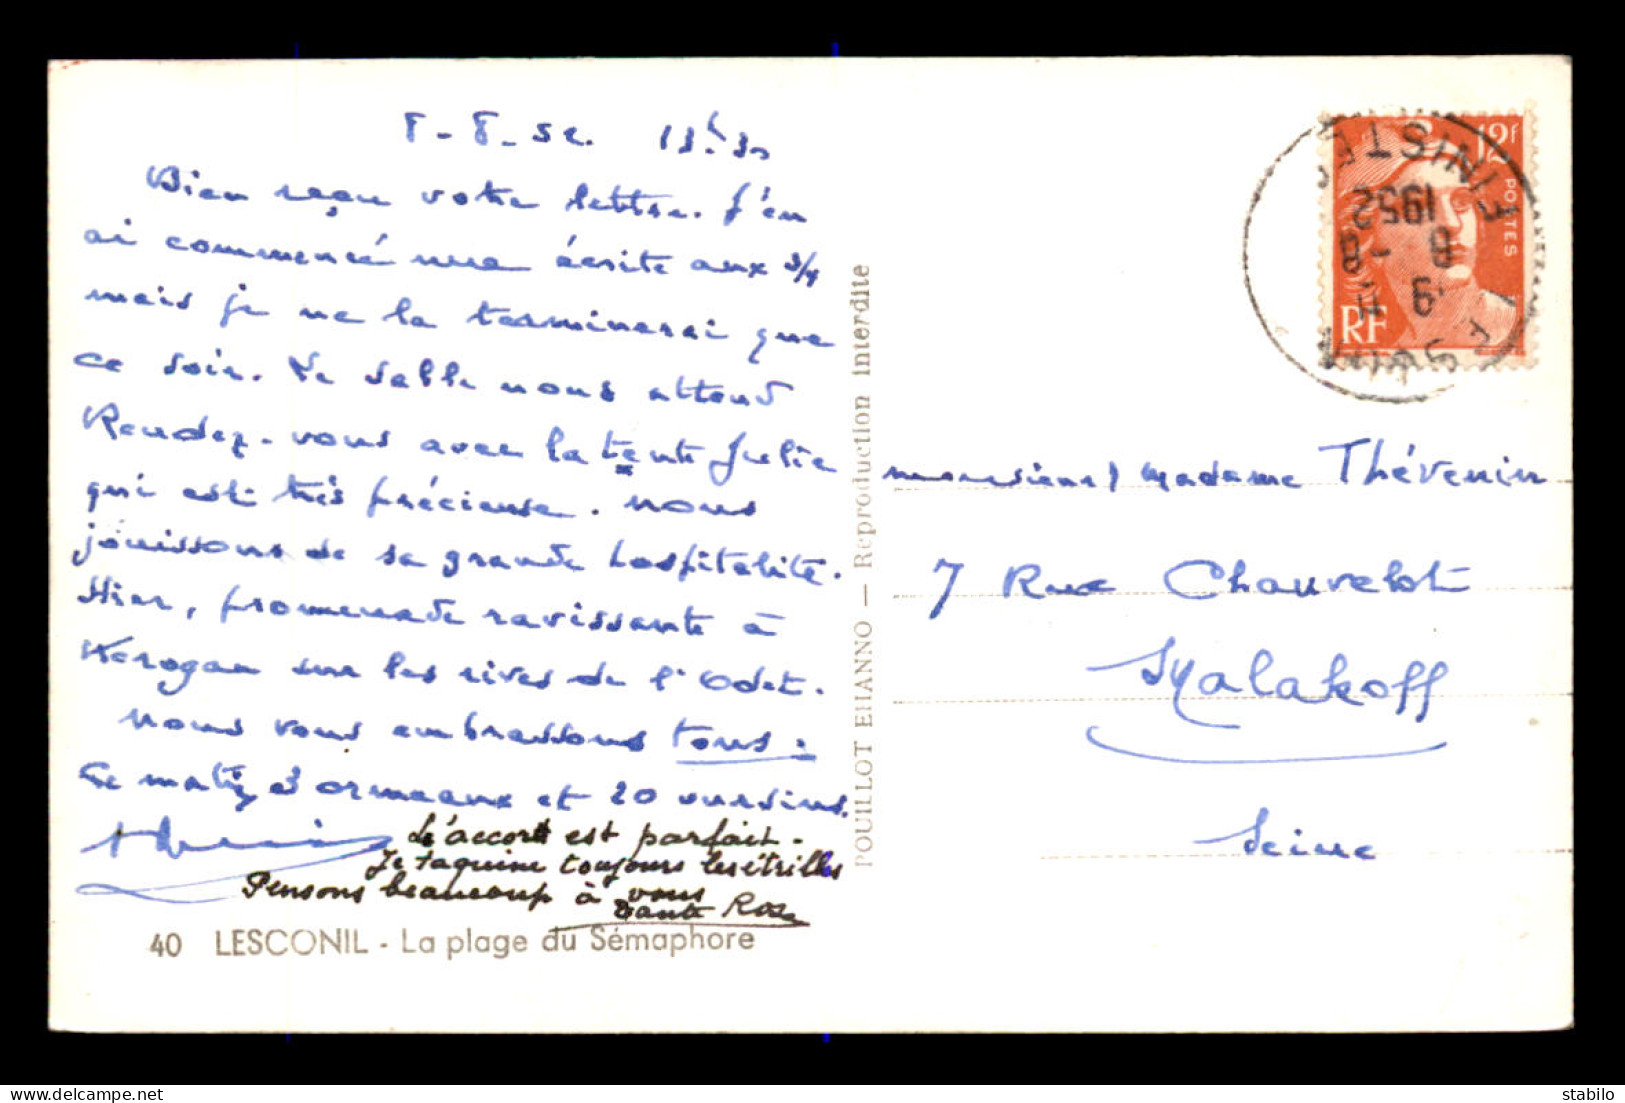 8-8-52. 13h.30
Bien reçu votre lettre. J'en
ai commencé une écrite aux 3/4
mais je ne la terminerai que
ce soir. Le sable nous attend
Rendez-vous avec la tente Julie
qui est très précieuse. Nous
jouissons de sa grande hospitalité.
Hier, promenade ravissante à
Kerogan sur les rives de l'Odet.
Nous vous embrassons tous.
Ce matin, 3 ormeaux et 20 oursins.
L'accord est parfait.
Je taquine toujours les étrilles
Pensons beaucoup à vous
Tante Rose
40 LESCONIL - La plage du Sémaphore
POUILLOT EHANNO — Reproduction interdite
12f
POSTES
RF
FINISTE
1952
8 - 8
19 H
Monsieur, Madame Thévenin
7 Rue Chauvelot
Malakoff
Seine
delcampe.net